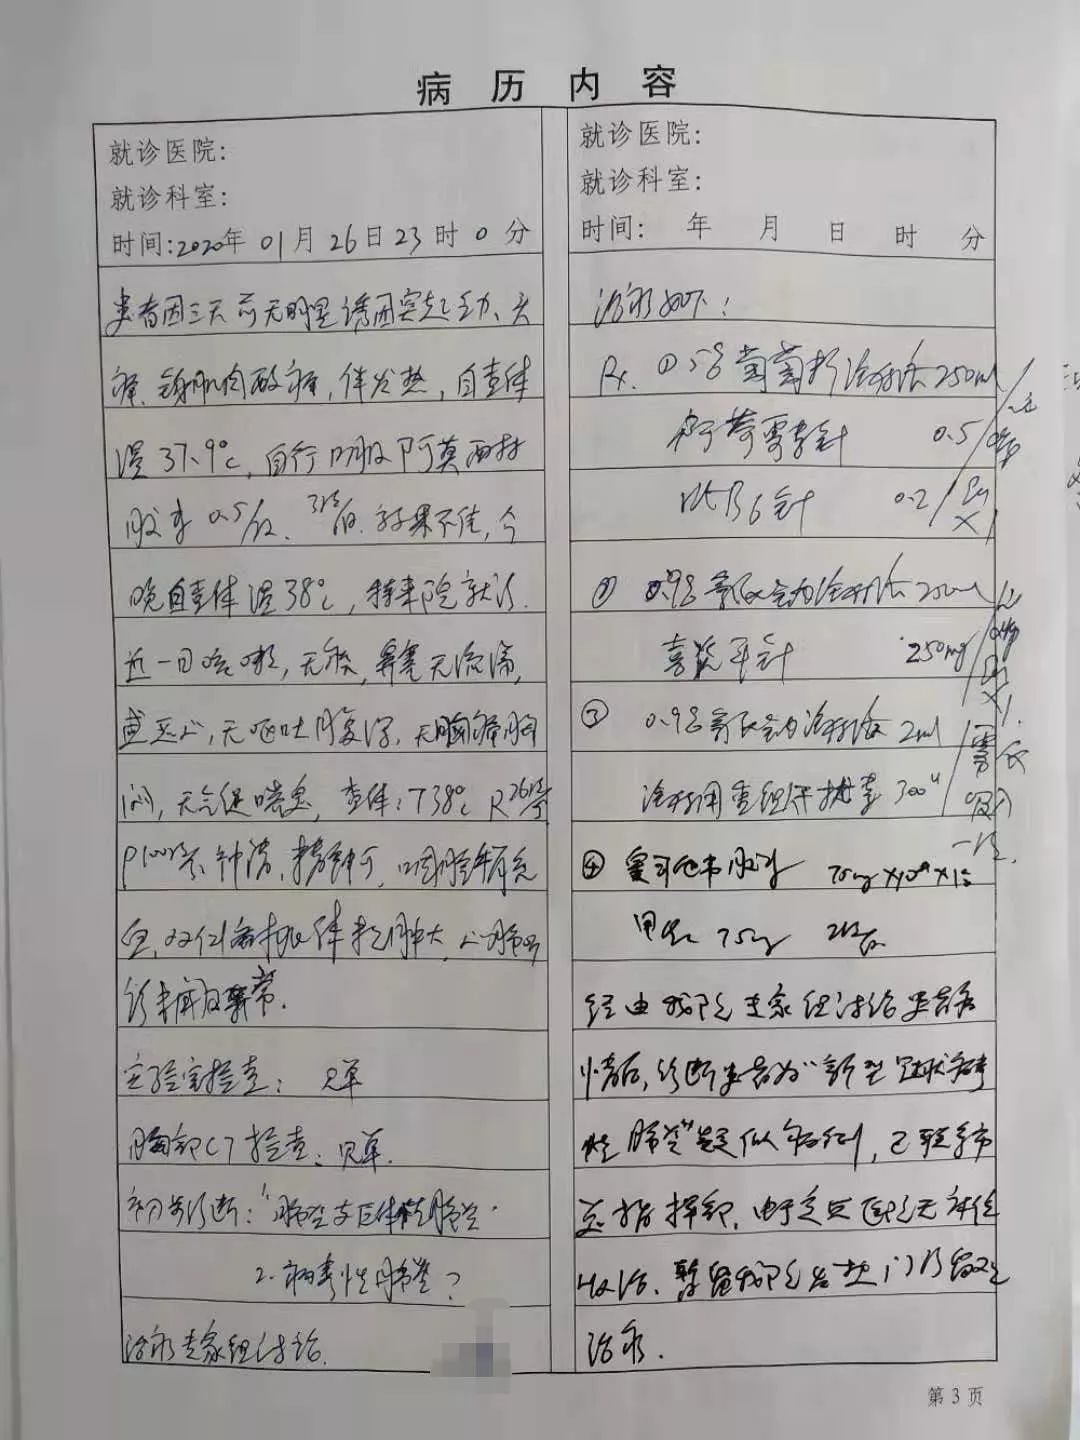 病 历 内 容
就诊医院:
就诊科室:
时间:2020年 01月 26日 23时 0分
患者因三天前无明显诱因突起乏力、头
痛、全身肌肉酸痛,伴发热,自查体
温 37.9℃,自行口服阿莫西林
胶囊 0.5/次、3次/日.效果不佳,今
晚自查体温38℃,特来院就诊.
近一日咳嗽,无痰,鼻塞无流涕,
无呕吐腹泻,无胸痛胸
闷,无气促喘息,查体:T38℃ R26次/分
P100次/分 神清,精神可,咽腔稍充
血,双侧扁桃体无肿大,心肺听
诊未闻及异常.
实验室检查:见单
胸部CT检查:见单.
初步诊断:1.肺炎支原体性肺炎
2.病毒性肺炎?
治疗专家组讨论.
就诊医院:
就诊科室:
时间: 年 月 日 时 分
治疗如下:
Rx. ① 5%葡萄糖注射液 250ml
阿奇霉素针 0.5
VitB6针 0.2
×1
② 0.9%氯化钠注射液 250ml
喜炎平针 250mg
×1.
③ 0.9%氯化钠注射液 2ml 雾化
注射用重组干扰素 300 吸入
一次.
④ 奥司他韦胶囊 75mg×10 ×1
用法 75mg 2次/日
经由我院专家组讨论患者病
情后,诊断患者为"新型冠状病毒
性肺炎"疑似病例,已联系市
指挥部,由于定点医院无床位
收治、暂留我院发热门诊留观
治疗.
第 3 页